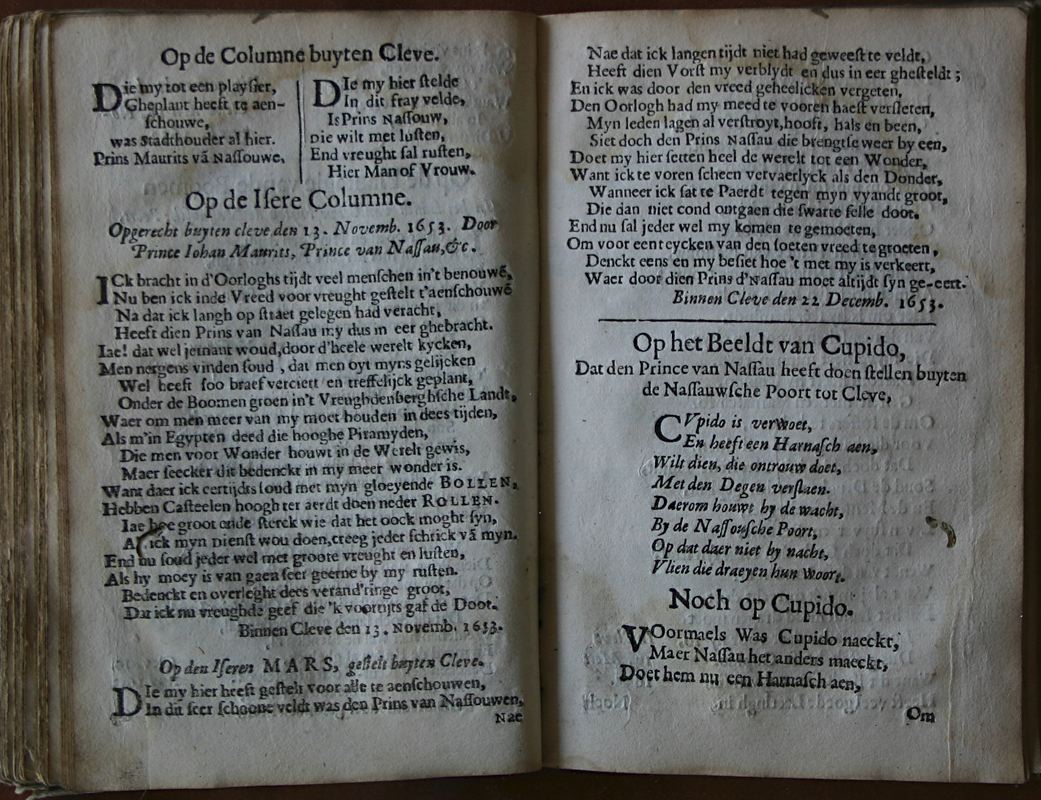 Op de Columne buyten Cleve.
DIe my tot een playsier,
Gheplant heeft te aen-
schouwe,
was Stadthouder al hier.
Prins Maurits vā Nassouwe,
DIe my hier stelde
In dit fray velde,
Is Prins Nassouw,
Die wilt met lusten,
End vreught sal rusten,
Hier Man of Vrouw.
Op de Isere Columne.
Opgerecht buyten cleve den 13. Novemb. 1653. Door
Prince Iohan Maurits, Prince van Nassau,&c.
ICk bracht in d'Oorloghs tijdt veel menschen in't benouwē,
Nu ben ick inde Vreed voor vreught gestelt t'aenschouwē
Na dat ick langh op straet gelegen had veracht,
Heeft dien Prins van Nassau my dus in eer ghebracht.
Iae! dat wel jemant woud,door d'heele werelt kycken,
Men nergens vinden soud, dat men oyt myns gelijcken
Wel heeft soo braef verciert en treffelijck geplant,
Onder de Boomen groen in't Vreughdenberghsche Landt,
Waer om men meer van my moet houden in dees tijden,
Als m'in Egypten deed die hooghe Piramyden,
Die men voor Wonder houwt in de Werelt gewis,
Maer seecker dit bedenckt in my meer wonder is.
Want daer ick eertijdts soud met myn gloeyende BOLLEN,
Hebben Casteelen hoogh ter aerdt doen neder ROLLEN.
Iae hoe groot ende sterck wie dat het oock moght syn,
Als ick myn Dienst wou doen,creeg jeder schrick vā myn.
End nu soud jeder wel met groote vreught en lusten,
Als hy moey is van gaen seer geerne by my rusten.
Bedenckt en overleght dees verand'ringe groot,
Dat ick nu vreughde geef die 'k voortijts gaf de Doot.
Binnen Cleve den 13. Novemb. 1653.
Op den Iseren MARS, gestelt buyten Cleve.
DIe my hier heeft gestelt voor alle te aenschouwen,
In dit seer schoone veldt was den Prins van Nassouwen,
Nae
Nae dat ick langen tijdt niet had geweest te veldt,
Heeft dien Vorst my verblydt en dus in eer ghesteldt;
En ick was door den vreed geheelicken vergeten,
Den Oorlogh had my meed te vooren haest versleten,
Myn leden lagen al verstroyt,hooft, hals en been,
Siet doch den Prins Nassau die brengtse weer by een,
Doet my hier setten heel de werelt tot een Wonder,
Want ick te voren scheen vervaerlyck als den Donder,
Wanneer ick sat te Paerdt tegen myn vyandt groot,
Die dan niet cond ontgaen die swarte felle doot.
End nu sal jeder wel my komen te gemoeten,
Om voor een teycken van den soeten vreed te groeten,
Denckt eens en my besiet hoe 't met my is verkeert,
Waer door dien Prins d'Nassau moet altijdt syn ge-eert.
Binnen Cleve den 22 Decemb. 1653.
Op het Beeldt van Cupido,
Dat den Prince van Nassau heeft doen stellen buyten
de Nassauwsche Poort tot Cleve,
CVpido is verwoet,
En heeft een Harnasch aen,
Wilt dien, die ontrouw doet,
Met den Degen verslaen.
Daerom houwt hy de wacht,
By de Nassousche Poort,
Op dat daer niet by nacht,
Vlien die draeyen hun woort.
Noch op Cupido.
VOormaels Was Cupido naeckt,
Maer Nassau het anders maeckt,
Doet hem nu een Harnasch aen,
Om